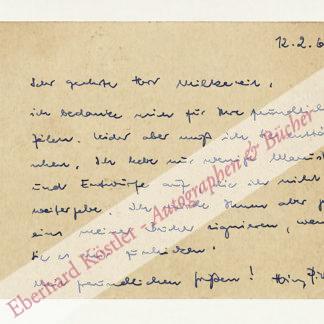 12.2.6
Sehr geehrter Herr
ich bedanke mich für Ihre freundlich
Zeilen. Leider aber muß ich
Ich habe nur wenige Manus
und Entwürfe auf, die ich nicht
weitergebe. Ich würde Ihnen aber g
eins meiner Bücher signieren, wen
Sie es mir schicken.
Mit freundlichen Grüßen!
Eberhard Köstler - Autographen & Bücher